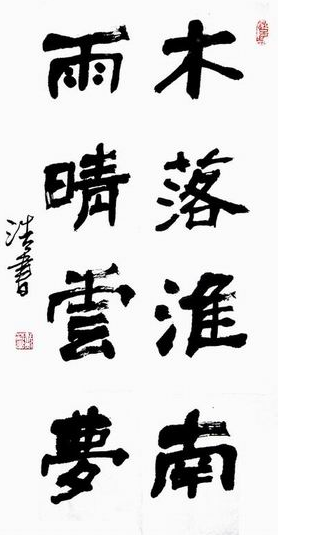 木落淮南
雨晴雲夢
浩書